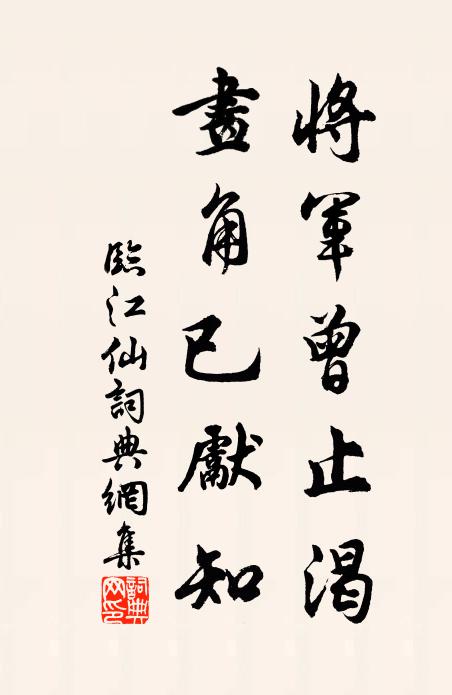 將軍曾止渴
畫角已獻知
臨江仙詞典網集
詞典網印